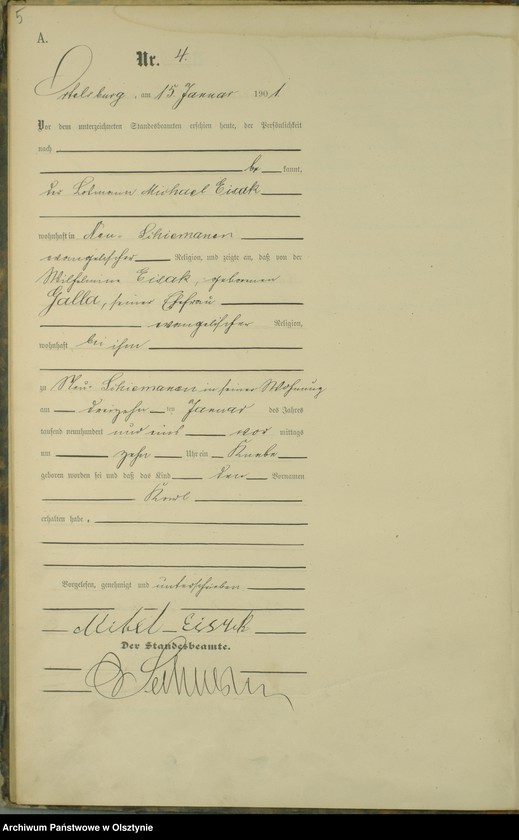 5
A.
Nr. 4.
Ortelsburg, am 15. Januar 1901
Vor dem unterzeichneten Standesbeamten erschien heute, der Persönlichkeit
nach
be kannt,
der Losmann Michael Eisak
wohnhaft in Neu-Schiemanen
evangelischer Religion, und zeigte an, daß von der
Wilhelmine Eisak, geborenen
Galla, seiner Ehefrau
evangelischer Religion,
wohnhaft bei ihm
zu Neu-Schiemanen in seiner Wohnung
am dreizehn ten Januar des Jahres
tausend neunhundert und eins vor mittags
um zehn Uhr ein Knabe
geboren worden sei und daß das Kind den Vornamen
Karl
erhalten habe.
Vorgelesen, genehmigt und unterschrieben
Eisak
Der Standesbeamte.
Archiwum Państwowe w Olsztynie